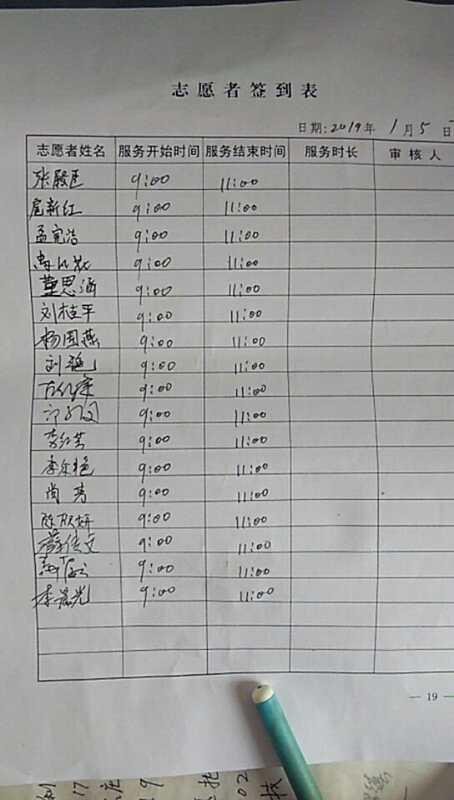 志愿者签到表
日期:2019年 1月5日
志愿者姓名 服务开始时间 服务结束时间 服务时长 审核人
张殿臣 9:00 11:00
扈新红 9:00 11:00
孟宪浩 9:00 11:00
9:00 11:00
董思涵 9:00 11:00
刘桂平 9:00 11:00
杨国燕 9:00 11:00
刘艳 9:00 11:00
9:00 11:00
9:00 11:00
李红芸 9:00 11:00
李乐艳 9:00 11:00
尚芳 9:00 11:00
陈欣妍 9:00 11:00
9:00 11:00
9:00 11:00
李瑞光 9:00 11:00
— 19 —